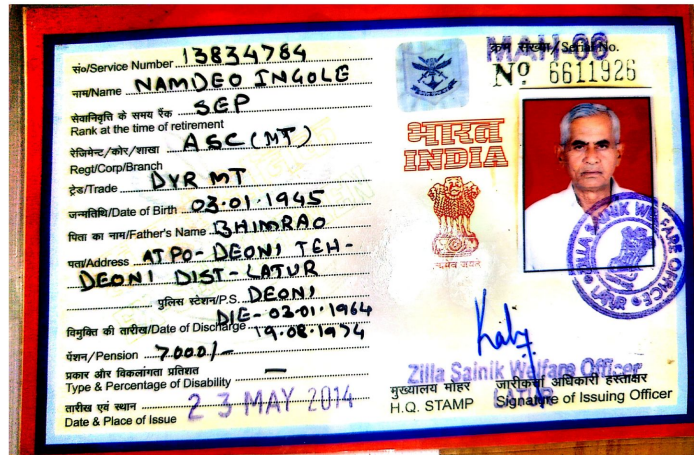 सं०/Service Number 13834784
नाम/Name NAMDEO INGOLE
सेवानिवृति के समय रैंक SEP
Rank at the time of retirement
रेजिमेन्ट/कोर/शाखा ASC (MT)
Regt/Corp/Branch
ट्रेड/Trade DVR MT
जन्मतिथि/Date of Birth 03.01.1945
पिता का नाम/Father's Name BHIMRAO
पता/Address AT PO- DEONI TEH-
DEONI DIST- LATUR
पुलिस स्टेशन/P.S. DEONI
DIE- 03.01.1964
विमुक्ति की तारीख/Date of Discharge 19.08.1974
पेंशन/Pension 7000/-
प्रकार और विकलांगता प्रतिशत —
Type & Percentage of Disability
तारीख एवं स्थान 23 MAY 2014
Date & Place of Issue
MAH 06
क्रम संख्या/Serial No.
Nº 6611926
भारत
INDIA
सत्यमेव जयते
ZILLA SAINIK WELFARE OFFICE
LATUR
Zilla Sainik Welfare Officer
LATUR
मुख्यालय मोहर
H.Q. STAMP
जारीकर्ता अधिकारी हस्ताक्षर
Signature of Issuing Officer